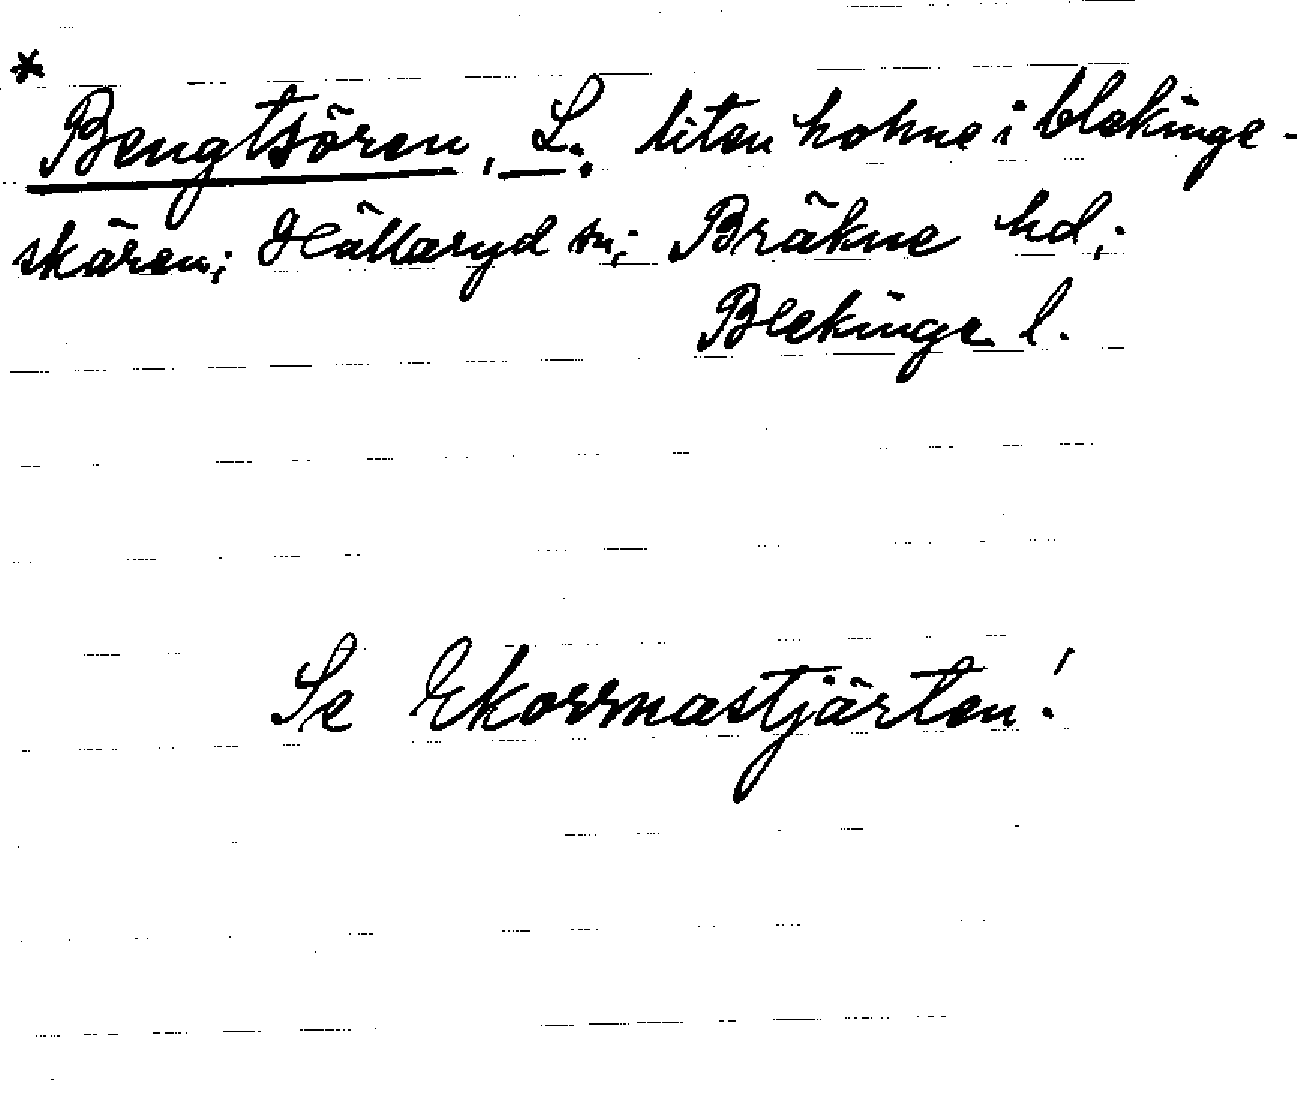 *
Bengtsören, L., liten holme i blekinge-
skären; Hällaryd sn; Bräkne hd;
Blekinge l.
Se Ekorrnastjärten!